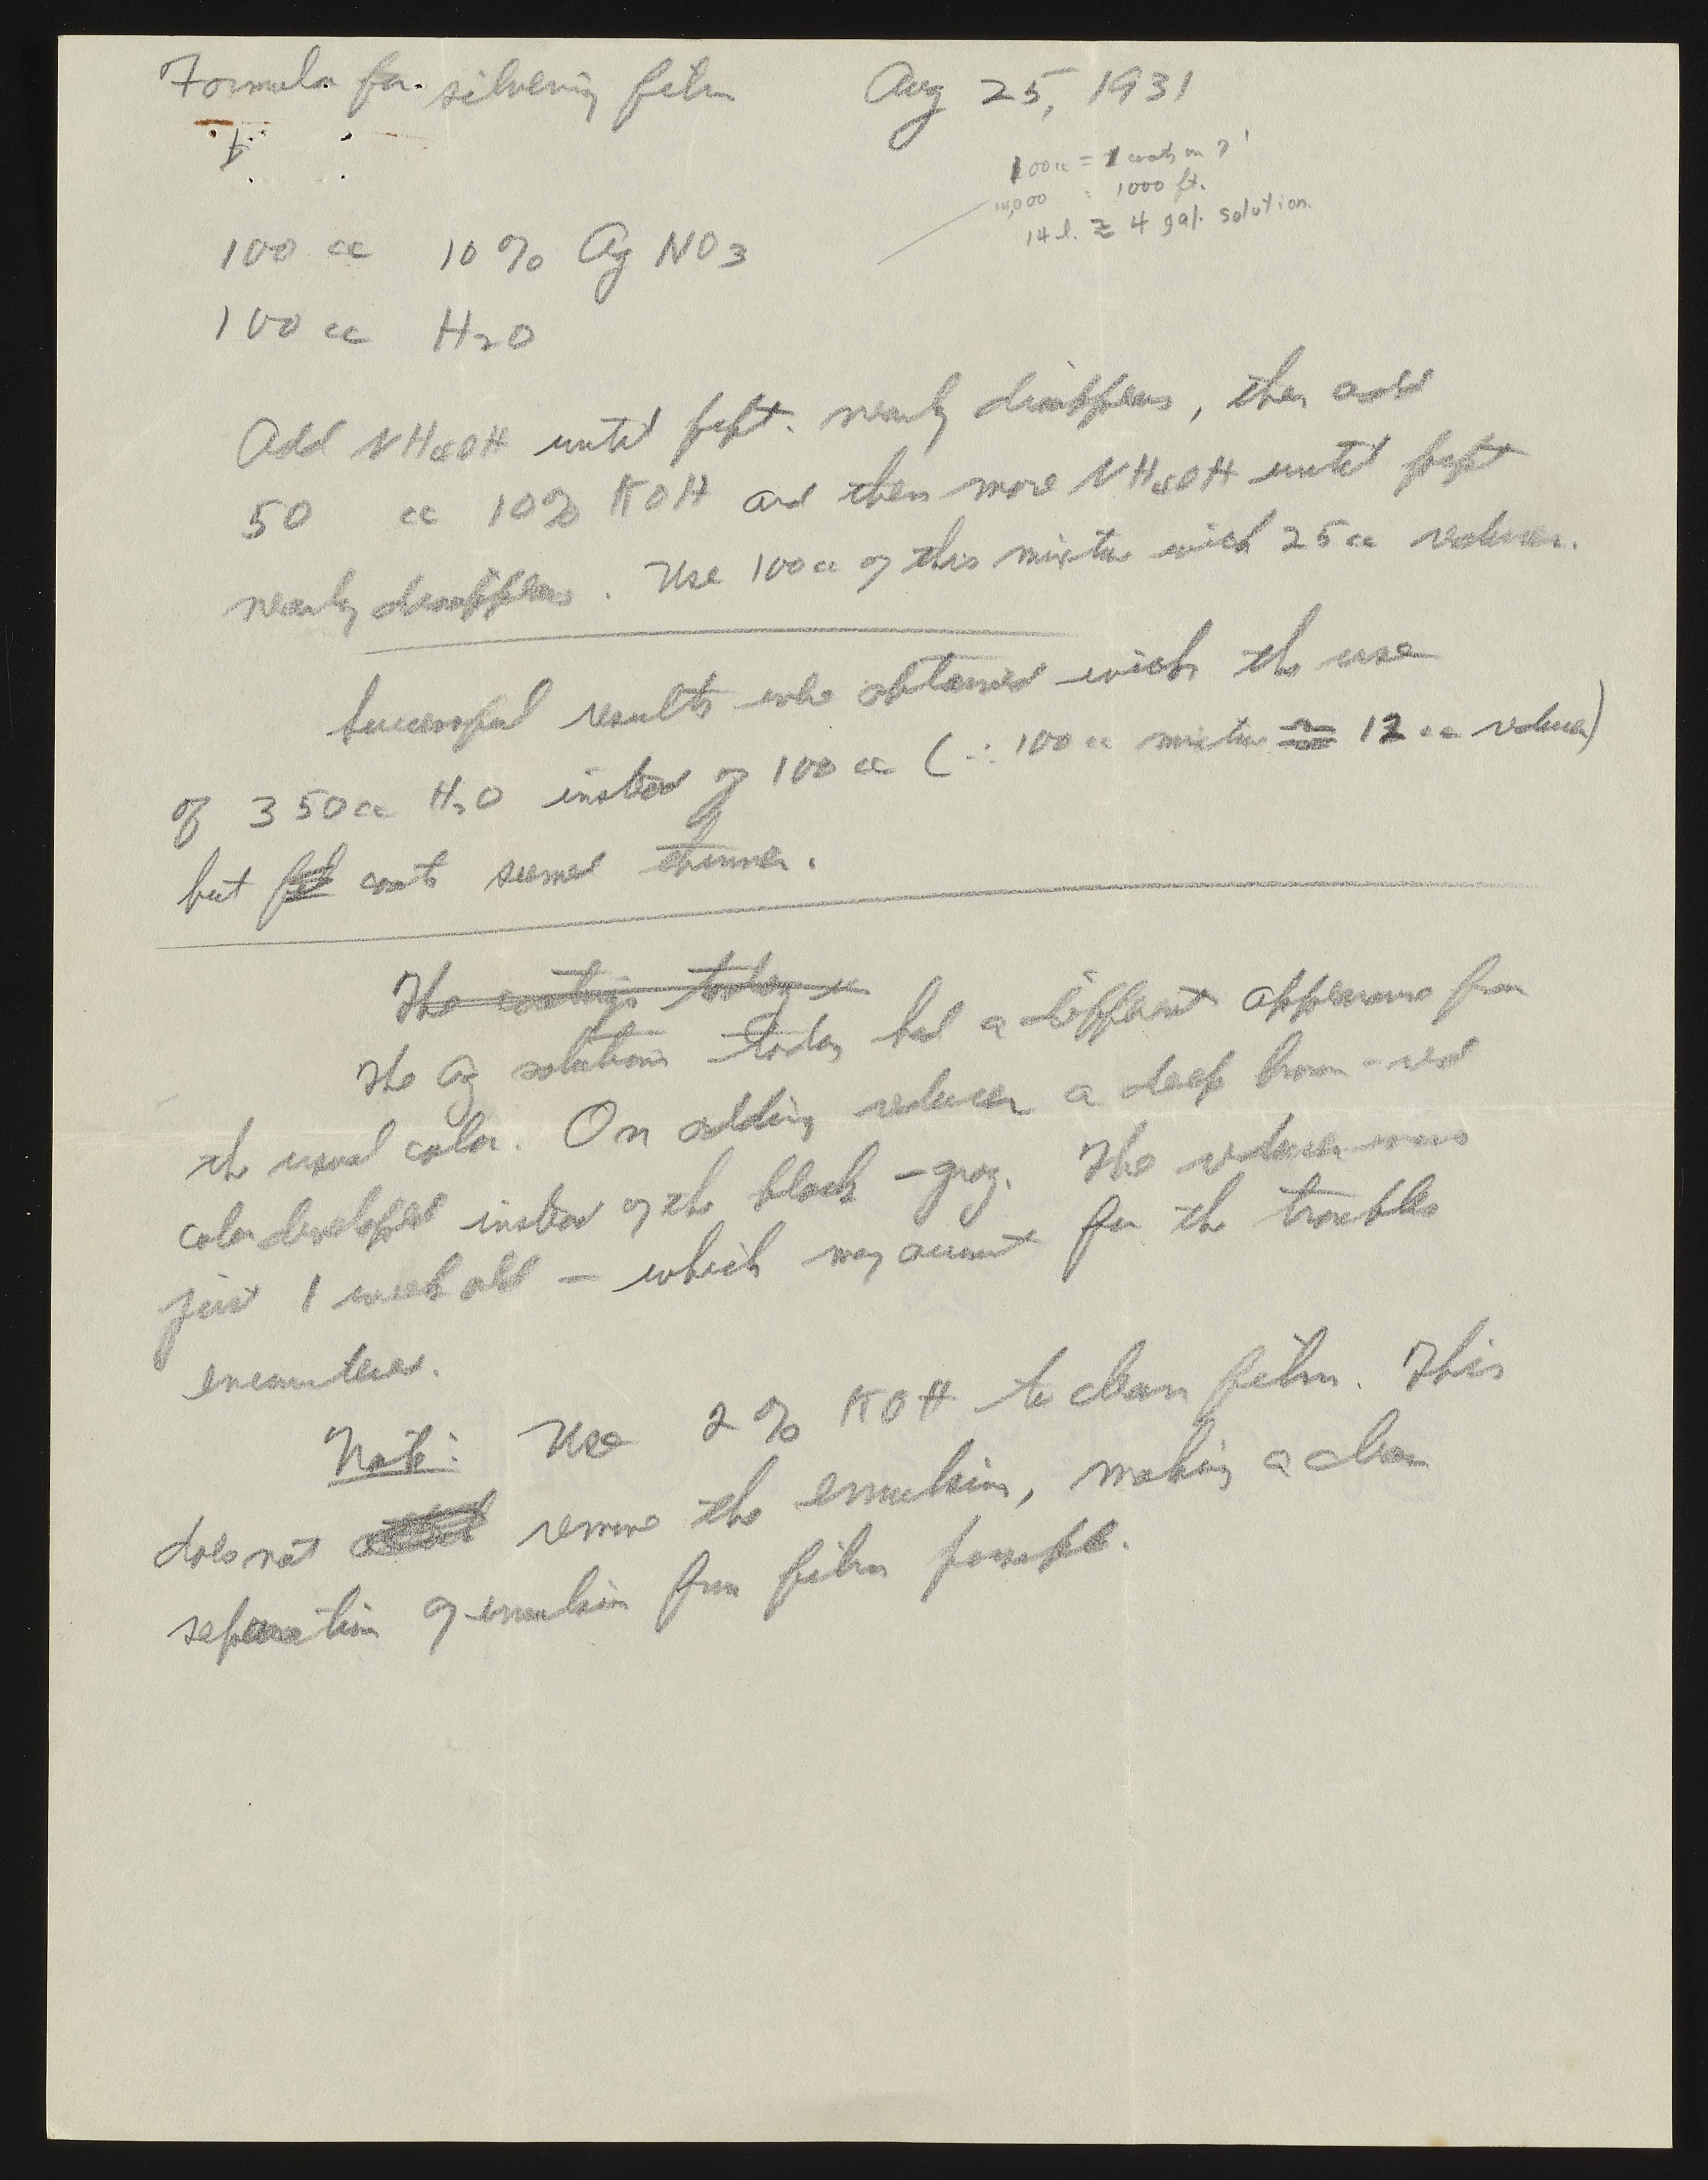 Formula for silvering film Aug 25, 1931
100cc = 1 coat on 7'
14,000 : 1000 ft.
14 l. ≅ 4 gal. solution.
100 cc 10% AgNO3
100 cc H2O
Add NH4OH until ppt. nearly disappears, then add
50 cc 10% KOH and then more NH4OH until ppt
nearly disappears. Use 100cc of this mixture with 25cc reducer.
Successful results were obtained with the use
of 350cc H2O instead of 100 cc (∴ 100cc mixture ≅ 12 cc reducer)
but coats seemed thinner.
The coatings today
The Ag solutions today had a different appearance from
the usual color. On adding reducer a deep brown-red
color developed instead of the black-gray. The reducer was
just 1 week old – which may account for the troubles
encountered.
Note: Use 2% KOH to clean film. This
does not remove the emulsion, making a clean
separation of emulsion from film possible.